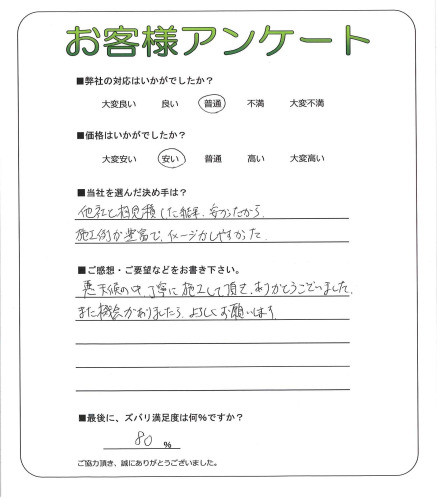 お客様アンケート
■弊社の対応はいかがでしたか？
大変良い 良い 普通 不満 大変不満
■価格はいかがでしたか？
大変安い 安い 普通 高い 大変高い
■当社を選んだ決め手は？
他社と相見積した結果、安かったから
施工例が豊富で、イメージがしやすかった
■ご感想・ご要望などをお書き下さい。
悪天候の中、丁寧に施工して頂き、ありがとうございました。
また機会がありましたら、よろしくお願いします
■最後に、ズバリ満足度は何％ですか？
80 ％
ご協力頂き、誠にありがとうございました。